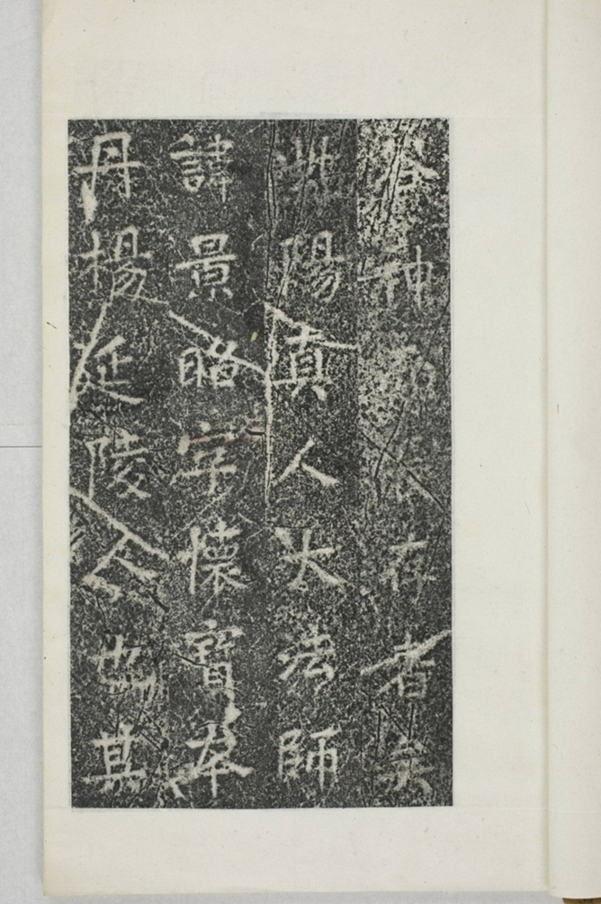 谷神存者矣
陽真人大法師
諱景昭字懷寶本
丹楊延陵人其